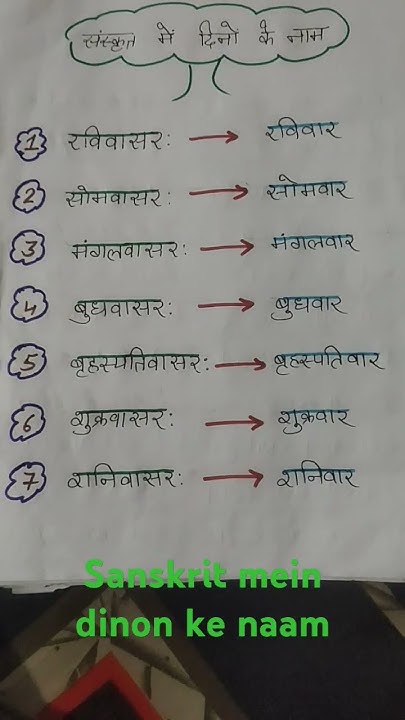 संस्कृत में दिनो के नाम
1 रविवासर: → रविवार
2 सोमवासर: → सोमवार
3 मंगलवासर: → मंगलवार
4 बुधवासर: → बुधवार
5 बृहस्पतिवासर: → बृहस्पतिवार
6 शुक्रवासर: → शुक्रवार
7 शनिवासर: → शनिवार
Sanskrit mein
dinon ke naam